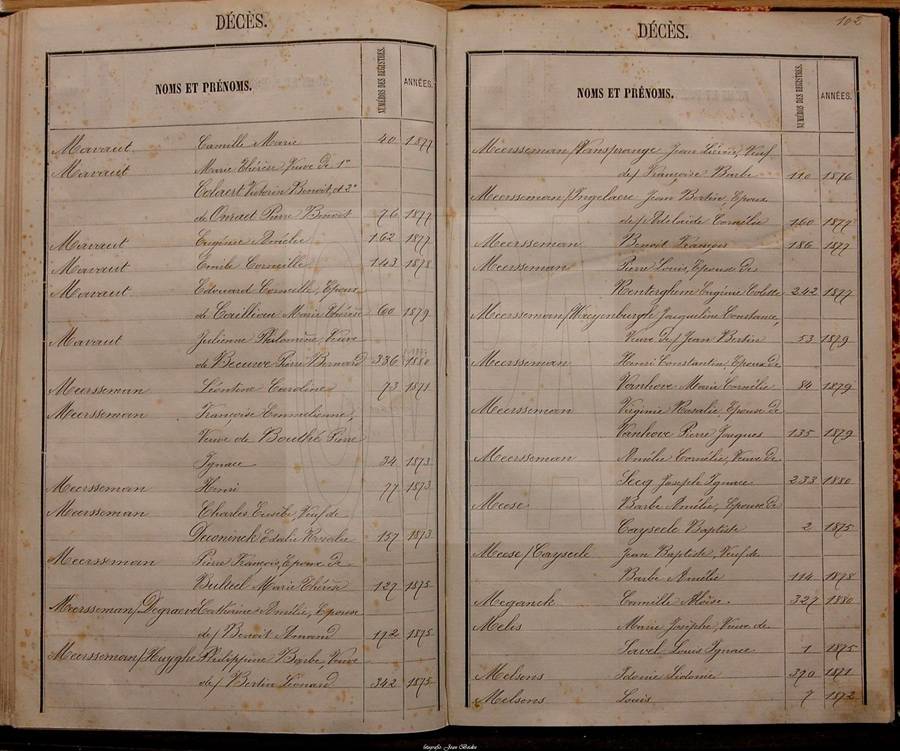 DÉCÈS.
NOMS ET PRÉNOMS. NUMÉROS DES REGISTRES. ANNÉES.
Mavaut Camille Marie 40 1877
Mavaut Marie Thérèse Veuve de 1º
Colaert Victorin Benoit, et 2º
de Onraet Pierre Benoit 76 1877
Mavaut Eugénie Amélie 162 1877
Mavaut Emile Corneille 143 1878
Mavaut Edouard Corneille, Epoux
de Cailliau Marie Thérèse 60 1879
Mavaut Julienne Philomène, Veuve
de Becuwe Pierre Bernard 336 1880
Meersseman Léontine Caroline 73 1871
Meersseman Françoise Emmelienne,
Veuve de Bouthé Pierre
Ignace 34 1873
Meersseman Henri 77 1873
Meersseman Charles Eusèbe, Veuf de
Deconinck Edalie Rosalie 157 1873
Meersseman Pierre François, Epoux de
Beulsel Marie Thérèse 127 1875
Meersseman/Degraeve Catherine Amélie, Epouse
de/ Benoit Amand 192 1875
Meersseman/Huyghe Philippine Barbe, Veuve
de/ Bertin Léonard 342 1875
102
DÉCÈS.
NOMS ET PRÉNOMS. NUMÉROS DES REGISTRES. ANNÉES.
Meersseman/Vansprange Jean Liévin, Veuf
de/ Françoise Barbe 110 1876
Meersseman/Ingelaere Jean Bertin, Epoux
de/ Adelaïde Cornélie 160 1877
Meersseman Benoit François 186 1877
Meersseman Pierre Louis, Epoux de
Renteghem Eugénie Colette 242 1877
Meersseman/Weyenburgh Jacqueline Constance,
Veuve de/ Jean Bertin 53 1879
Meersseman Henri Constantin, Epoux de
Vanhove Marie Cornélie 84 1879
Meersseman Virginie Rosalie, Epouse de
Vanhove Pierre Jacques 135 1879
Meersseman Amélie Cornélie, Veuve de
Secq Joseph Ignace 233 1880
Meese Barbe Amélie, Epouse de
Cayseele Baptiste 2 1875
Meese/Cayseele Jean Baptiste, Veuf de
Barbe Amélie 114 1878
Meganck Camille Aloïse 327 1880
Melis Marie Josèphe, Veuve de
Javel Louis Ignace 1 1875
Melsens Idonie Sidonie 370 1871
Melsens Louis 7 1872